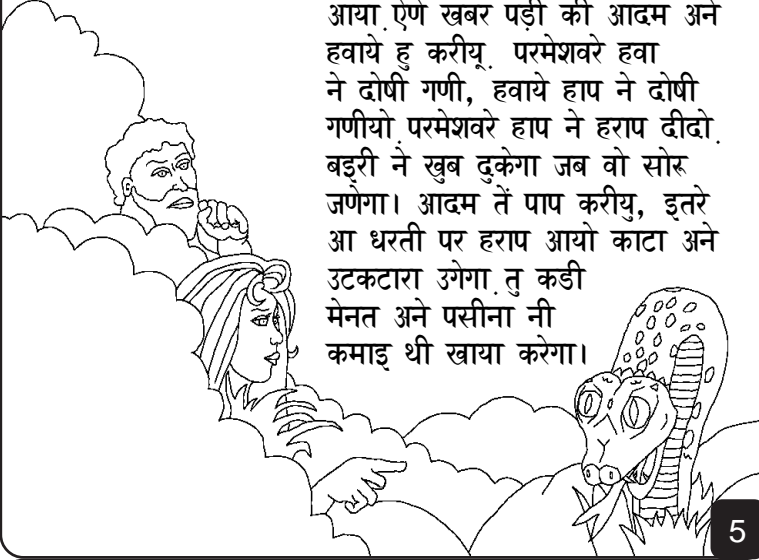 आया.ऐणे खबर पड़ी की आदम अने
हवाये हु करीयू. परमेशवरे हवा
ने दोषी गणी, हवाये हाप ने दोषी
गणीयो.परमेशवरे हाप ने हराप दीदो.
बइरी ने खुब दुकेगा जब वो सोरू
जणेगा। आदम तें पाप करीयु, इतरे
आ धरती पर हराप आयो काटा अने
उटकटारा उगेगा.तु कडी
मेनत अने पसीना नी
कमाइ थी खाया करेगा।
5